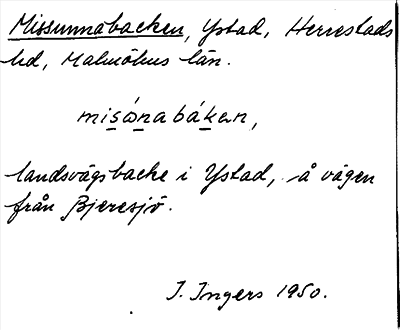 Missunnabacken, Ystad, Herrestads
hd, Malmöhus län.
misónabákan,
landsvägsbacke i Ystad, å vägen
från Bjeresjö.
I. Ingers 1950.